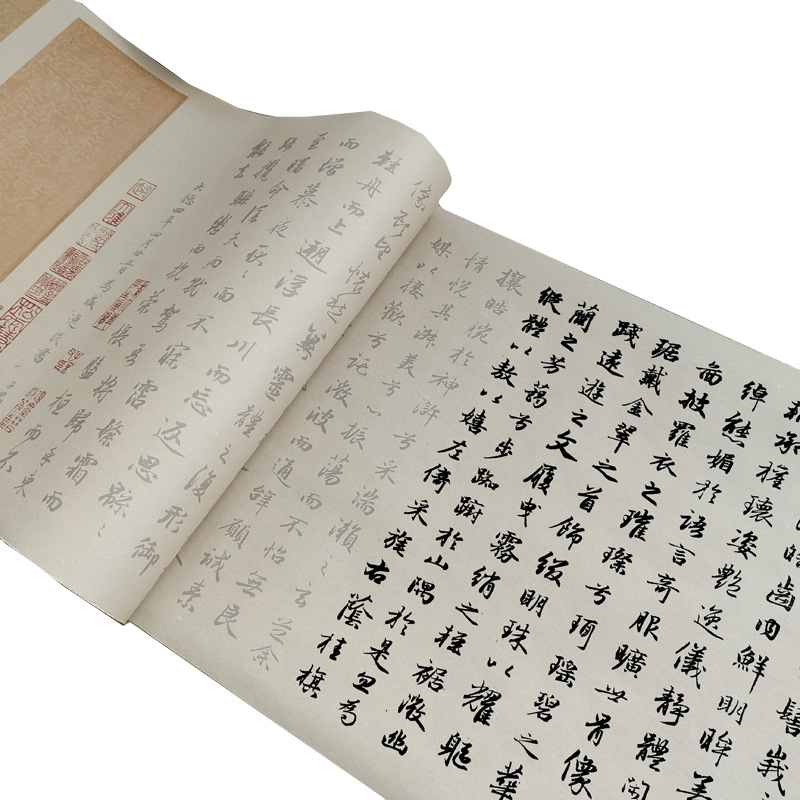 齒内鮮明眸善
輔承權瓌姿艷逸儀靜體閑
綽態媚於語言奇服曠世骨像
面披羅衣之璀璨兮珥瑤碧之華
琚戴金翠之首飾綴明珠以耀軀
踐遠遊之文履曳霧綃之輕裾微幽
蘭之芳藹兮步踟躕於山隅於是忽焉
縱體以遨以嬉左倚采旄右蔭桂旗
攘皓腕於神滸兮采湍瀨之玄芝余
情悅其淑美兮心振蕩而不怡無良
媒以接歡兮託微波而通辭願誠素
像顧望懷愁冀靈體之復形御
輕舟而上遡浮長川而忘返思緜々
而增慕夜耿々而不寐霑繁霜而
至曙命僕夫而就駕吾將歸乎東
路攬騑轡以抗策悵盤桓而不
能去
大德四年四月廿五日為盛逸民書